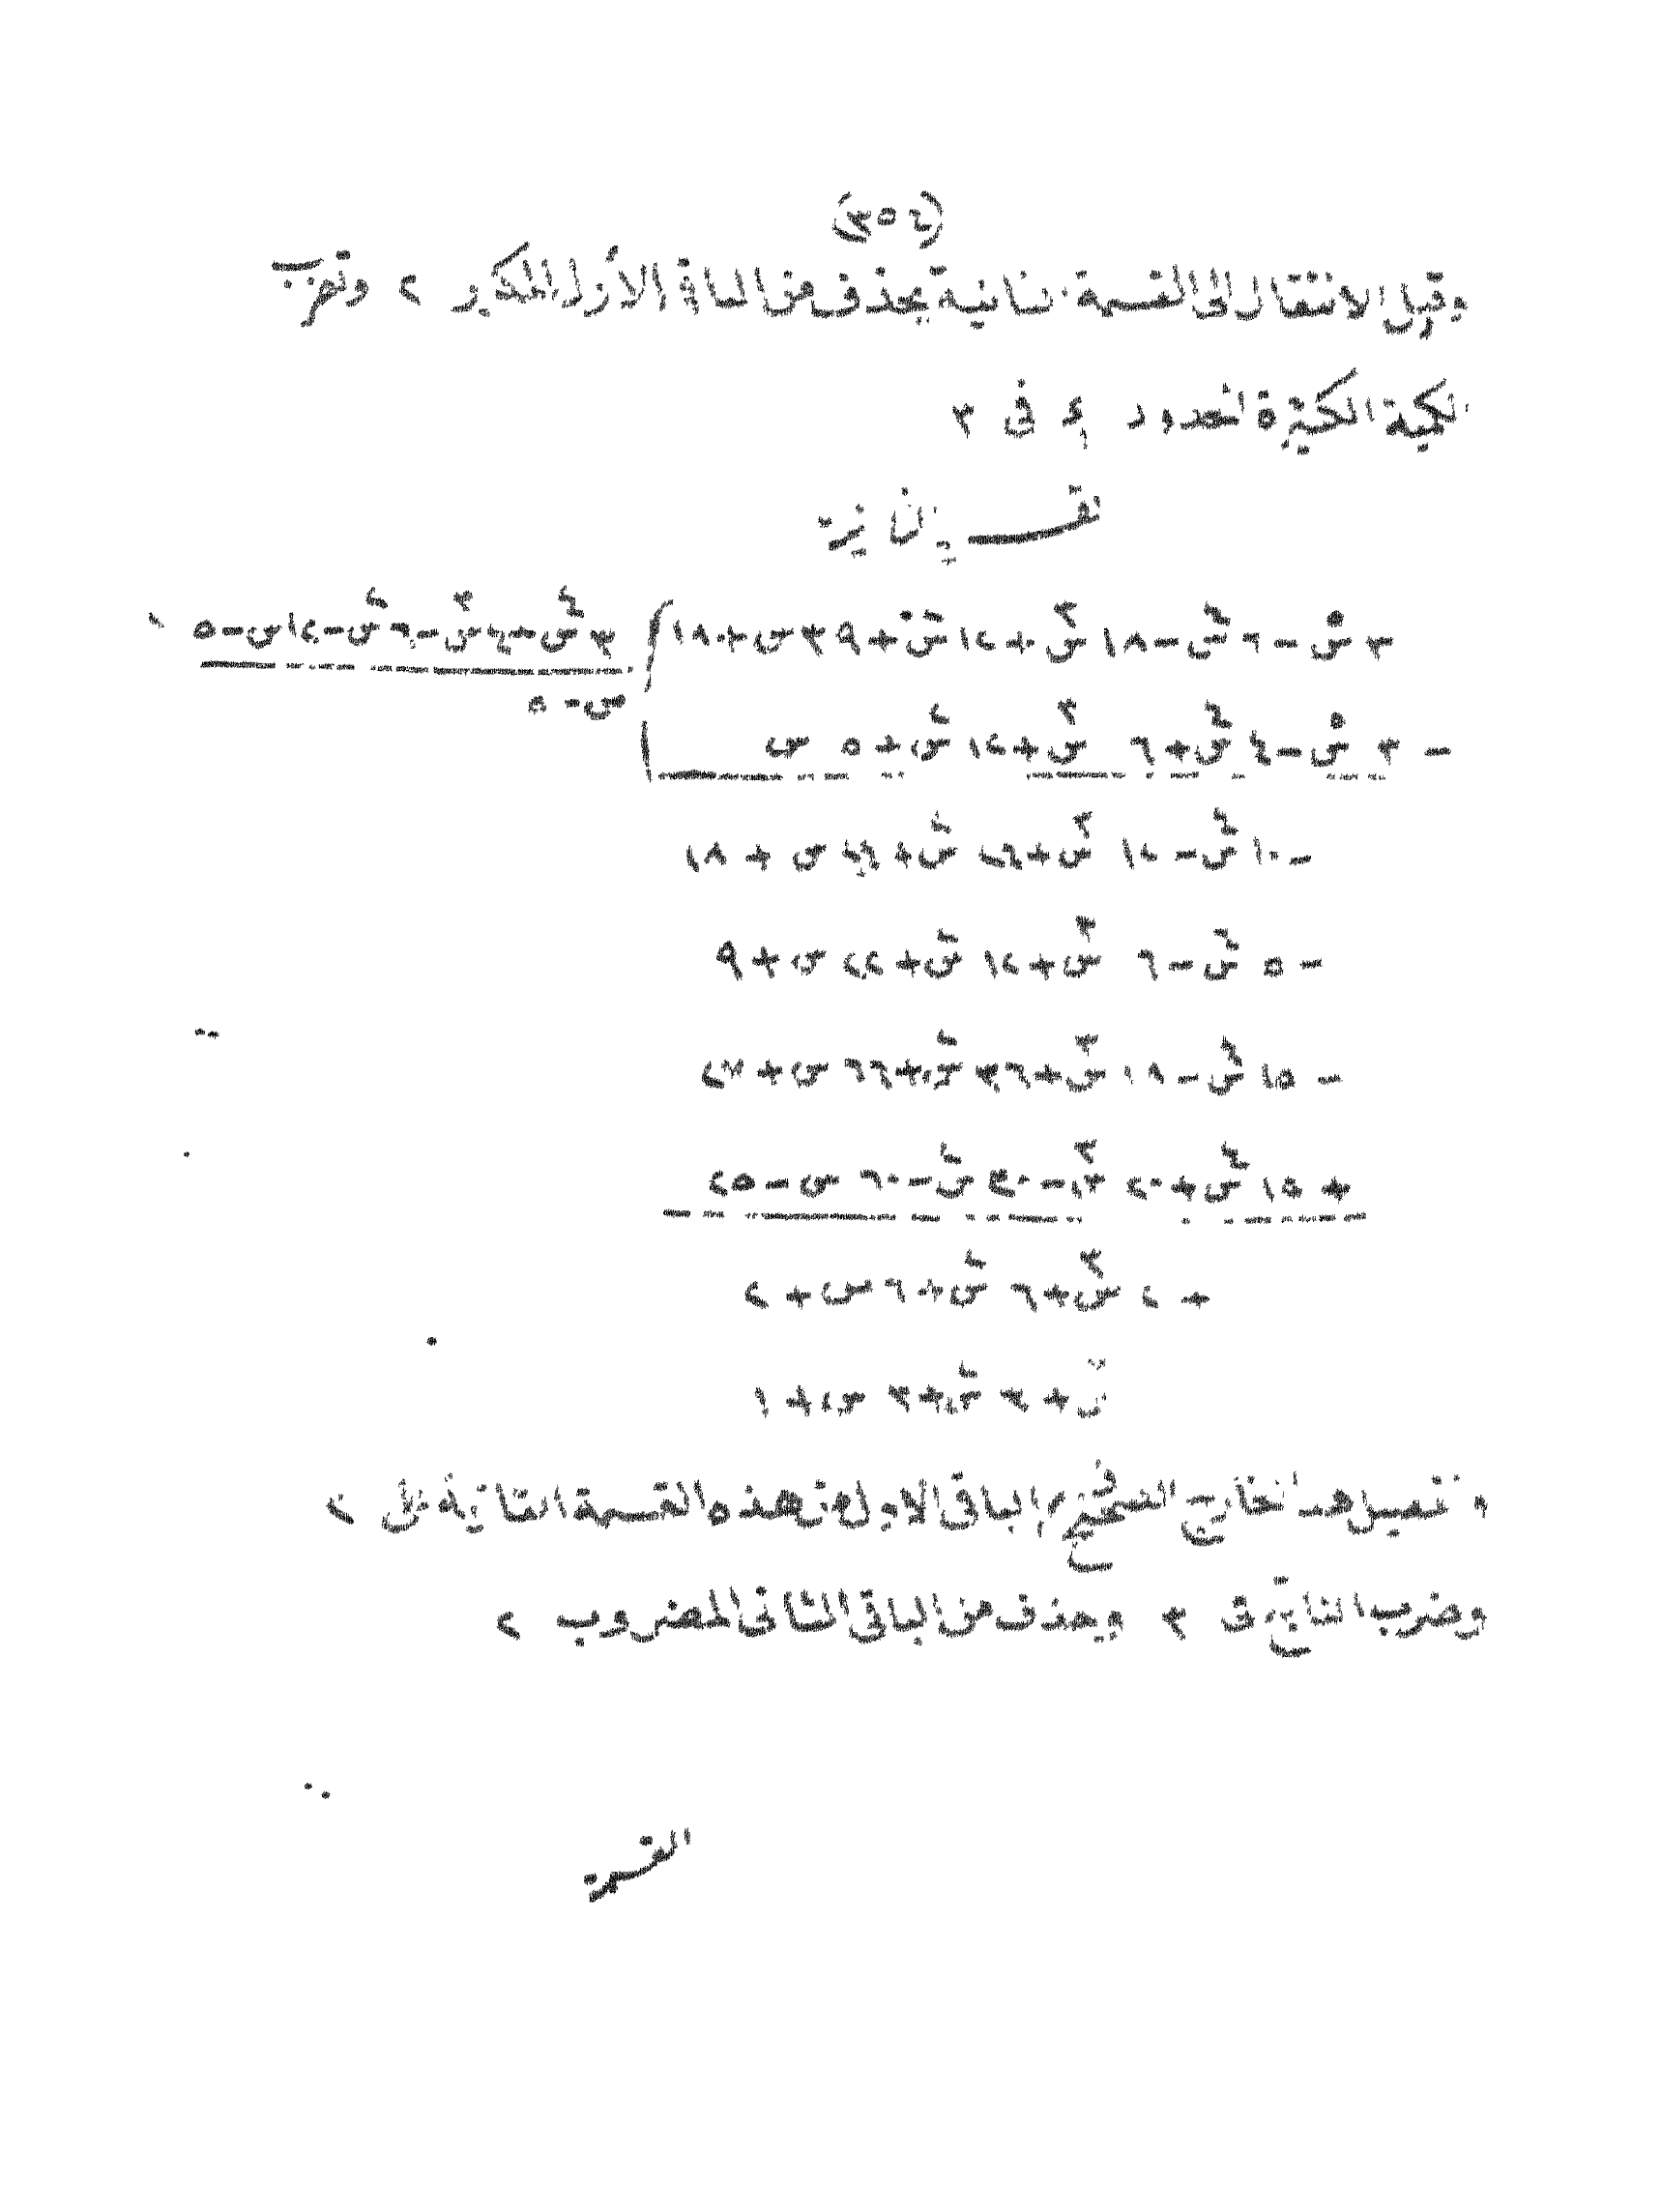 (٣٥٤)
وقبل الانتقال الى القسمة الثانية يحذف من الباقى الأول المذكور ٢ وتضرب
الكمية الكثيرة الحدود فى ٣
ثانية
٣ س٥ - ٦ س٤ - ١٨ س٣ + ١٢ س٢ + ٣٩ س + ١٨ ( ٣ س٤ + ٤ س٣ - ٦ س٢ - ١٢ س - ٥
س - ٥
- ٣ س٥ - ٤ س٤ + ٦ س٣ + ١٢ س٢ + ٥ س
- ١٠ س٤ - ١٢ س٣ + ٢٤ س٢ + ٤٤ س + ١٨
- ٥ س٤ - ٦ س٣ + ١٢ س٢ + ٢٢ س + ٩
- ١٥ س٤ - ١٨ س٣ + ٣٦ س٢ + ٦٦ س + ٢٧
+ ١٥ س٤ + ٢٠ س٣ - ٣٠ س٢ - ٦٠ س - ٢٥
+ ٢ س٣ + ٦ س٢ + ٦ س + ٢
س٣ + ٣ س٢ + ٣ س + ١
الخارج الصحيح الباقى الاول من هذه القسمة الثانية على ٢
وضرب الناتج فى ٣ ويحذف من الباقى الثانى المضروب ٢
القسمة